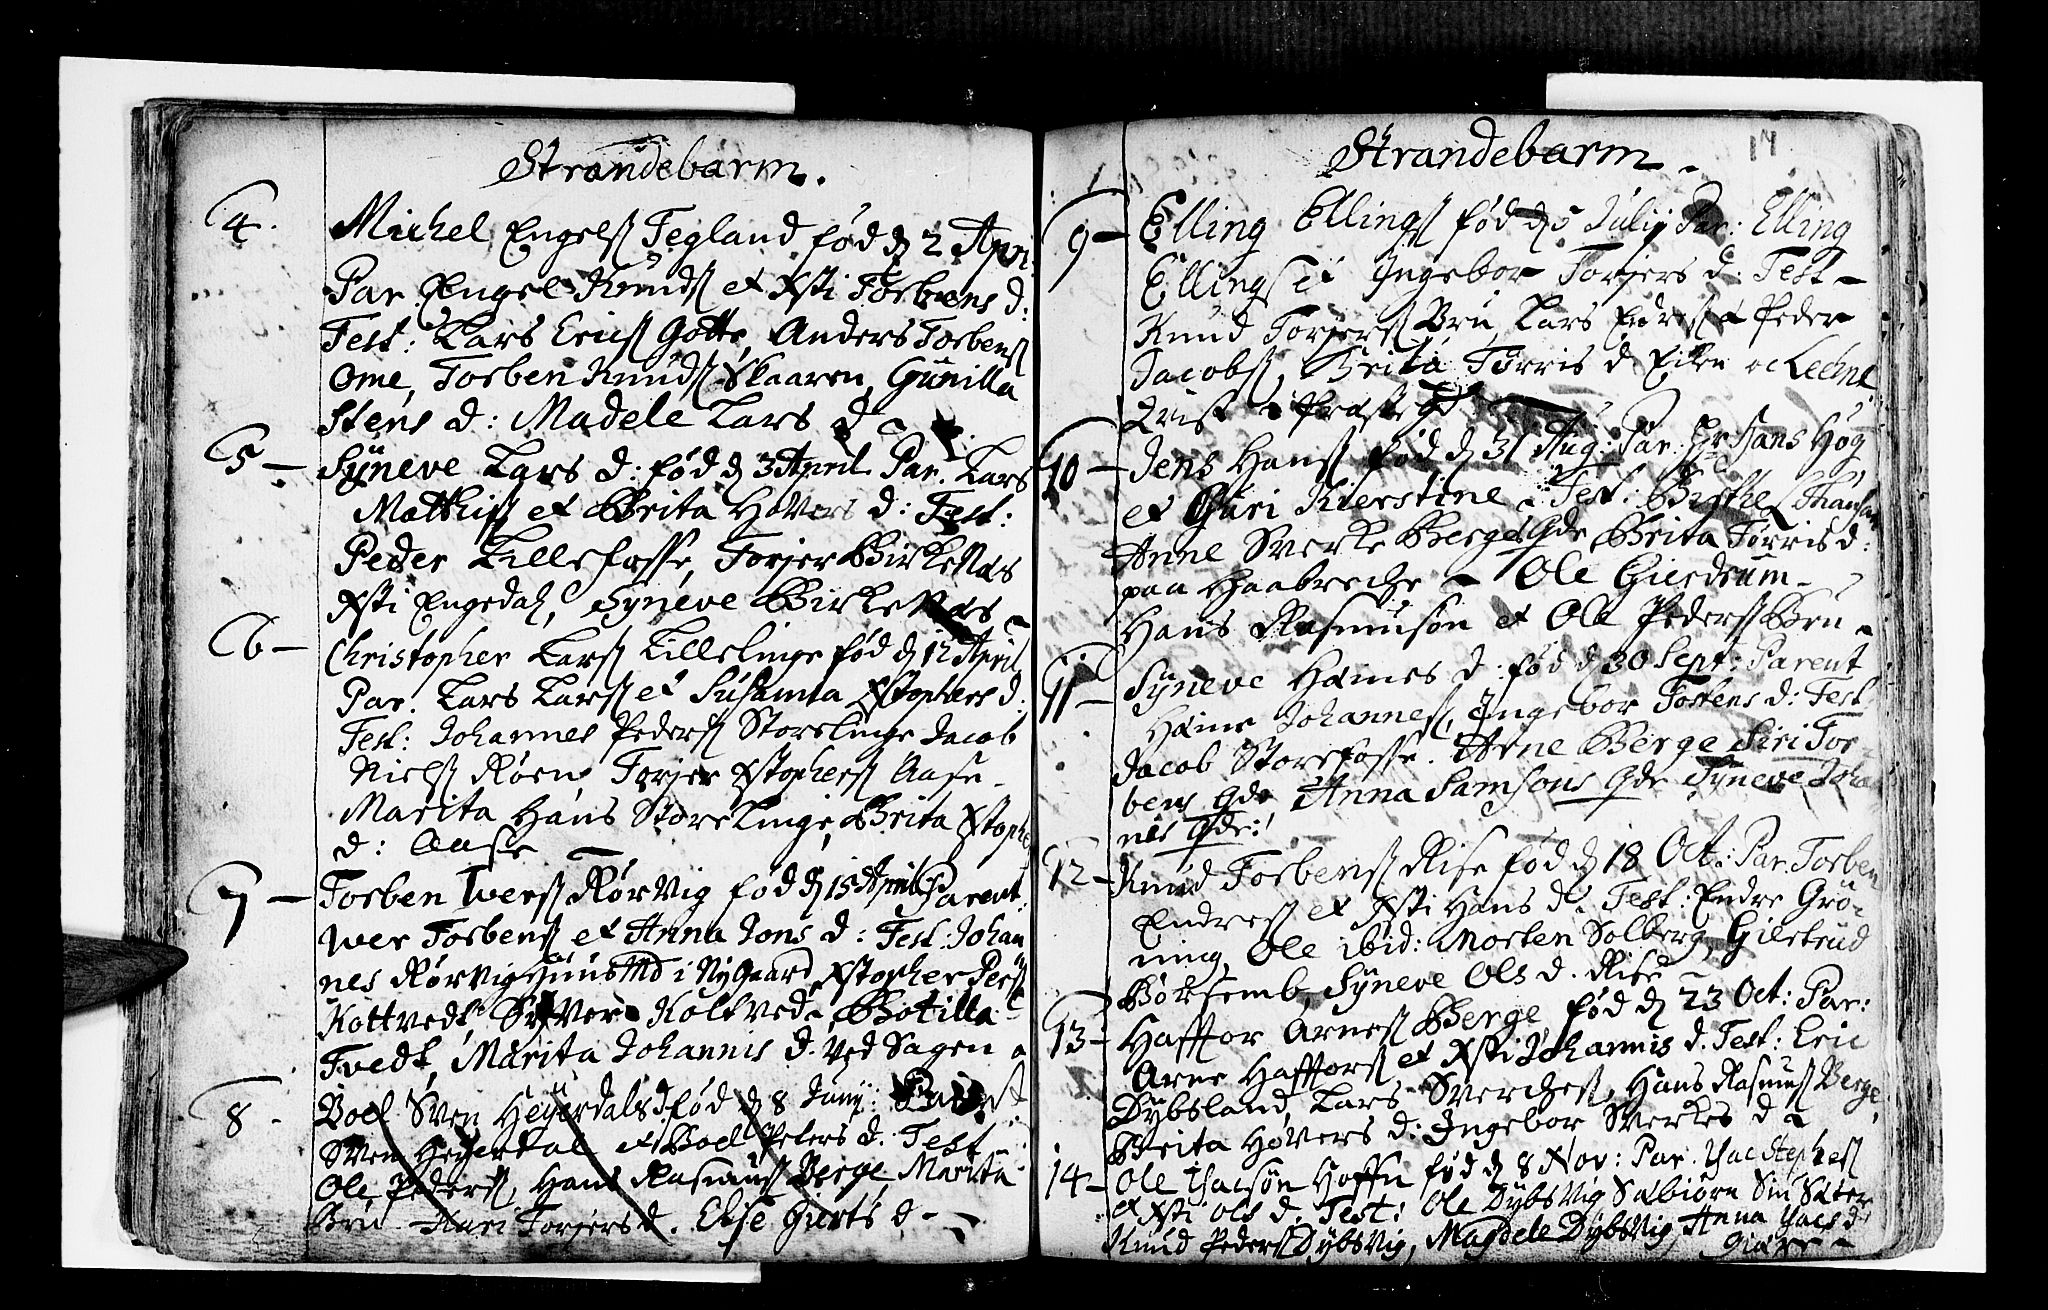 Strandebarm.
4. Michel Engels Tegland fød d 2 Apri
Par. Engel Knuds et Xsti Torbens d:
Test: Lars Erics Gotte, Anders Torbens
Ome, Torben Knuds Skaaren, Gunilla
Stens d: Madele Lars d
5 - Syneve Lars d: fød d 3 April Par. Lars
Matthis et Brita Hovers d: Test:
Peder Lillefosse, Torjer Birkenes
Xsti Engedal, Syneve Birkenes
6 - Christopher Lars Lillelinge fød d 12 April
Par. Lars Lars et Susanna Xstophers d:
Test: Johannes Peders Storelinge Jacob
Niels Røen, Torjer Xstophers Aase
Marita Hans Storelinge, Brita Xstophe
d: Aase
7 - Torben Ivers Rørvig fød d 15 April Parent:
Iver Torbens et Anna Jons d: Test: Johan
nes Rørvig i Nygaard Xstopher Pers
Kottvedt, Syver Koltved, Botilla
Tvedt, Marita Johannis d. ved Sagen
8 - Boel Sven Heyerdals d: fød d 8 Juny:
Sven Heyerdal et Boel Peters d. Test
Ole Peders, Hans Rasmus Berge, Marita
Bru Kari Torjers d. Else Gierts d -
Strandebarm
17
9 - Elling Ellings fød d 5 July Par: Elling
Ellings Ingebor Torjers d: Test -
Knud Torjers Bru, Lars Peder
Jacobs, Brita Torris d
10 - Jens Hans fød d 31 Aug: Par. Hr Hans Høg
et Guri Kierstine. Test: Birthe
Anne Sverke Berges Qde, Brita Torris d:
paa Haabreche - Ole Gierdrum -
Hans Rasmusøn et Ole Peders Bru
11 - Syneve Heines d: fød d 30 Sept: Parent
Heine Johannes, Ingebor Tostens d: Test
Jacob Storefosse. Arne Berge Siri Tor-
bens Qde, Anna Samsons Qde Syneve Joha
nis Qde:
12 - Knud Torbens Rise fød d 18 Oct: Par. Torben
Endres et Xsti Hans d: Test: Endre Grø-
ning, Ole ibid: Morten Solberg, Giertrud
Børsemb, Syneve Ols d. Rise
13 - Hafftor Arnes Berge fød d 23 Oct: Par:
Arne Hafftors et Xsti Johannis d. Test: Eric
Dybsland, Lars Sverches, Hans Rasmus Berge,
Brita Hovers d: Ingebor Sverkes d
14 - Ole Isacsøn Hoffn fød d 8 Nov: Par. Isac Stephes
et Xsti Ols d. Test: Ole Dybsvig Sæbiørn
Knud Peders Dybsvig, Magdele Dybsvig Anna Isacs d